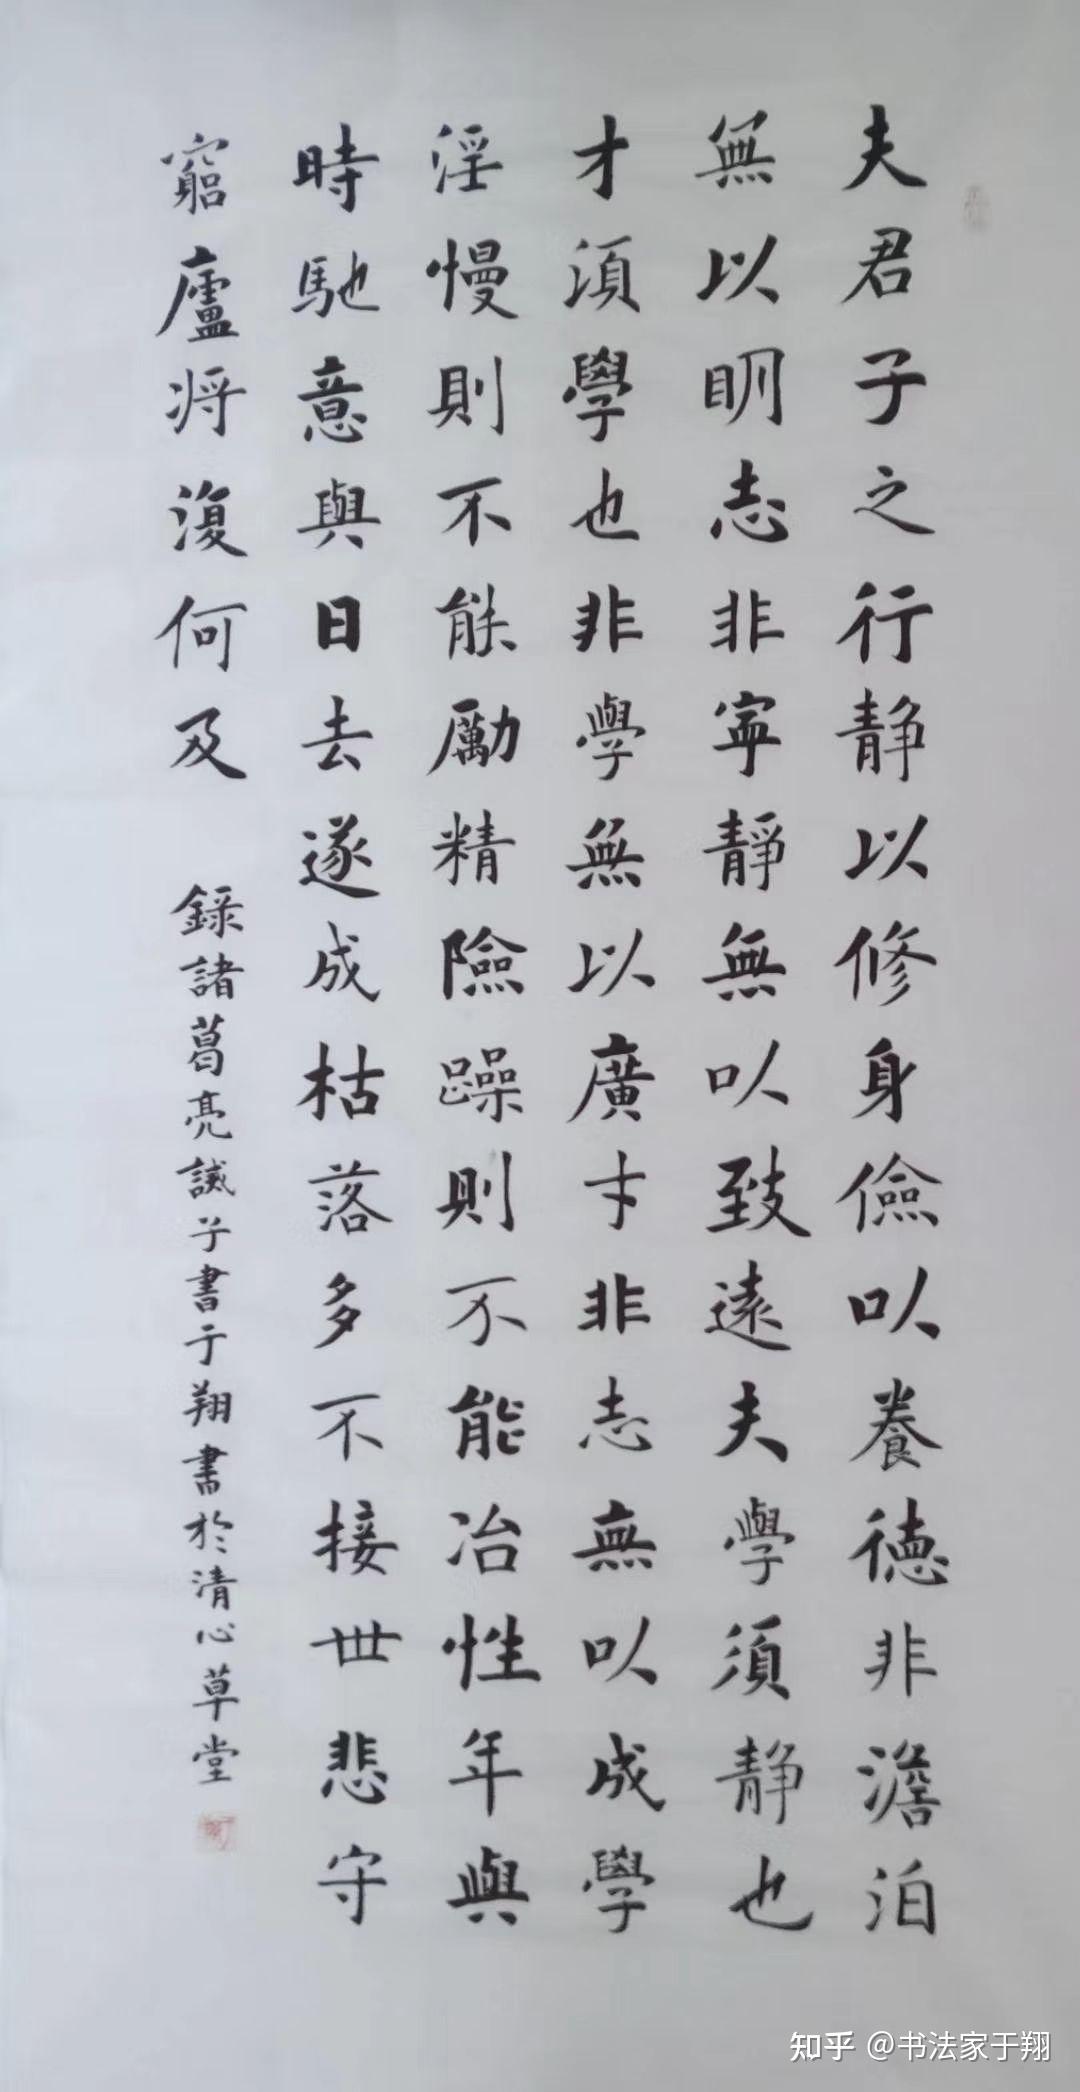 夫君子之行静以修身儉以養德非澹泊
無以明志非寧靜無以致遠夫學須静也
才須學也非學無以廣才非志無以成學
淫慢則不能勵精險躁則不能冶性年與
時馳意與日去遂成枯落多不接世悲守
窮廬将復何及
錄諸葛亮誡子書于翔書於清心草堂
知乎 @书法家于翔